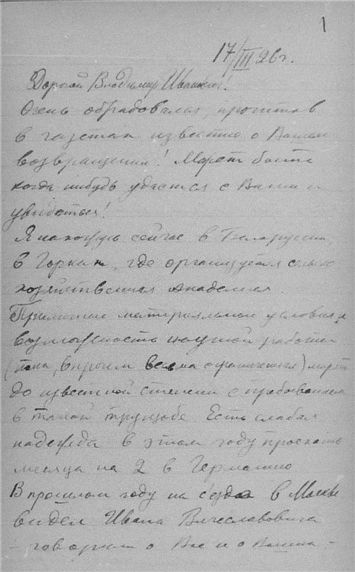 1
17/III 26 г.
Дорогой Владимир Иванович!
Очень обрадовался, прочитав
в газетах известие о Вашем
возвращении! Может быть
когда нибудь удастся с Вами и
увидеться!
Я нахожусь сейчас в Белоруссии
в Горках, где организуется сельско
хозяйственная Академия.
Приличные материальные условия и
возможность научной работы
(пока, впрочем весьма ограниченная) мирят
до известной степени с пребыванием
в такой трущобе. Есть слабая
надежда в этом году проехать
месяца на 2 в Германию
В прошлом году на съезде в Москве
видел Ивана Вячеславовича
говорили о Вас и о Ваших